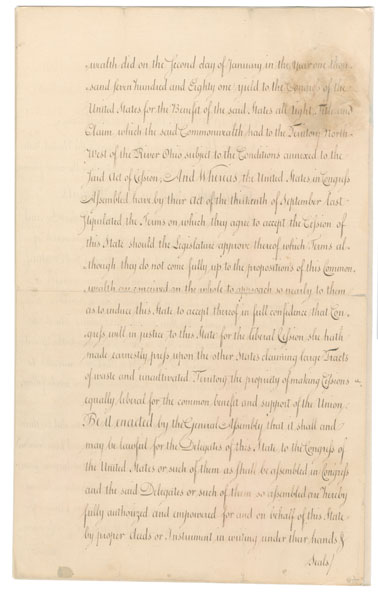 wealth did on the Second day of January in the Year one thou
sand seven hundred and Eighty one yield to the Congress of the
United States for the Benefit of the said States all right Title and
Claim which the said Commonwealth had to the Territory North
West of the River Ohio subject to the Conditions annexed to the
said Act of Cession; And Whereas the United States in Congress
Assembled have by their Act of the thirteenth of September last
Stipulated the Terms on which they agree to accept the Cession of
this State should the Legislature approve thereof which Terms al-
though they do not come fully up to the propositions of this Common
wealth are conceived on the whole to approach so nearly to them
as to induce this State to accept thereof in full confidence that Con-
gress will in justice to this State for the liberal Cession she hath
made earnestly press upon the other States claiming large Tracts
of waste and uncultivated Territory the propriety of making Cessions
equally liberal for the common benefit and support of the Union
Be it enacted by the General Assembly that it shall and
may be lawful for the Delegates of this State to the Congress of
the United States or such of them as shall be assembled in Congress
and the said Delegates or such of them so assembled are hereby
fully authorized and empowered for and on behalf of this State
by proper deeds or Instrument in writing under their hands &
Seals/